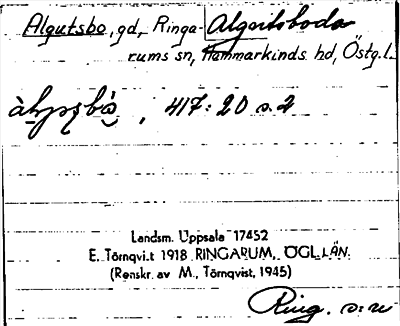 Algutsbo, gd, Ringa- Algutsboda
rums sn, Hammarkinds hd, Östg.l.
, 417:20 s. 2
Landsm. Uppsala 17452
E. Törnqvist 1918 RINGARUM, ÖGL.LÄN.
(Renskr. av M. Törnqvist, 1945)
Ring.